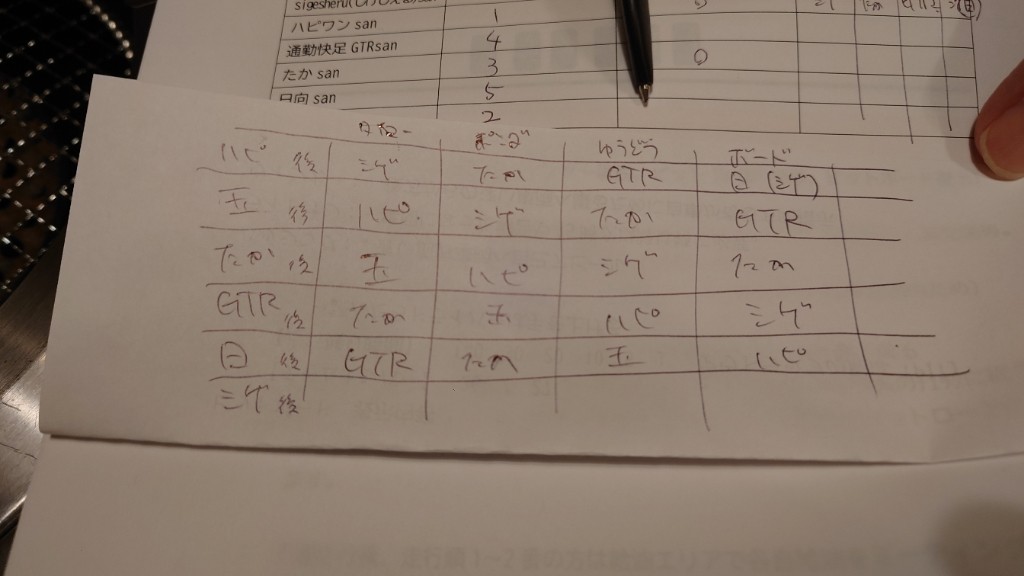 ハピワン san 1
通勤快足 GTRsan 4
たか san 3 0
日向 san 5
2
ゆうどう ボード
ハピ 後 シゲ たか GTR 日 (シゲ)
玉 後 ハピ シゲ たか GTR
たか 後 玉 ハピ シゲ たか
GTR 後 たか 玉 ハピ シゲ
日 後 GTR たか 玉 ハピ
シゲ 後